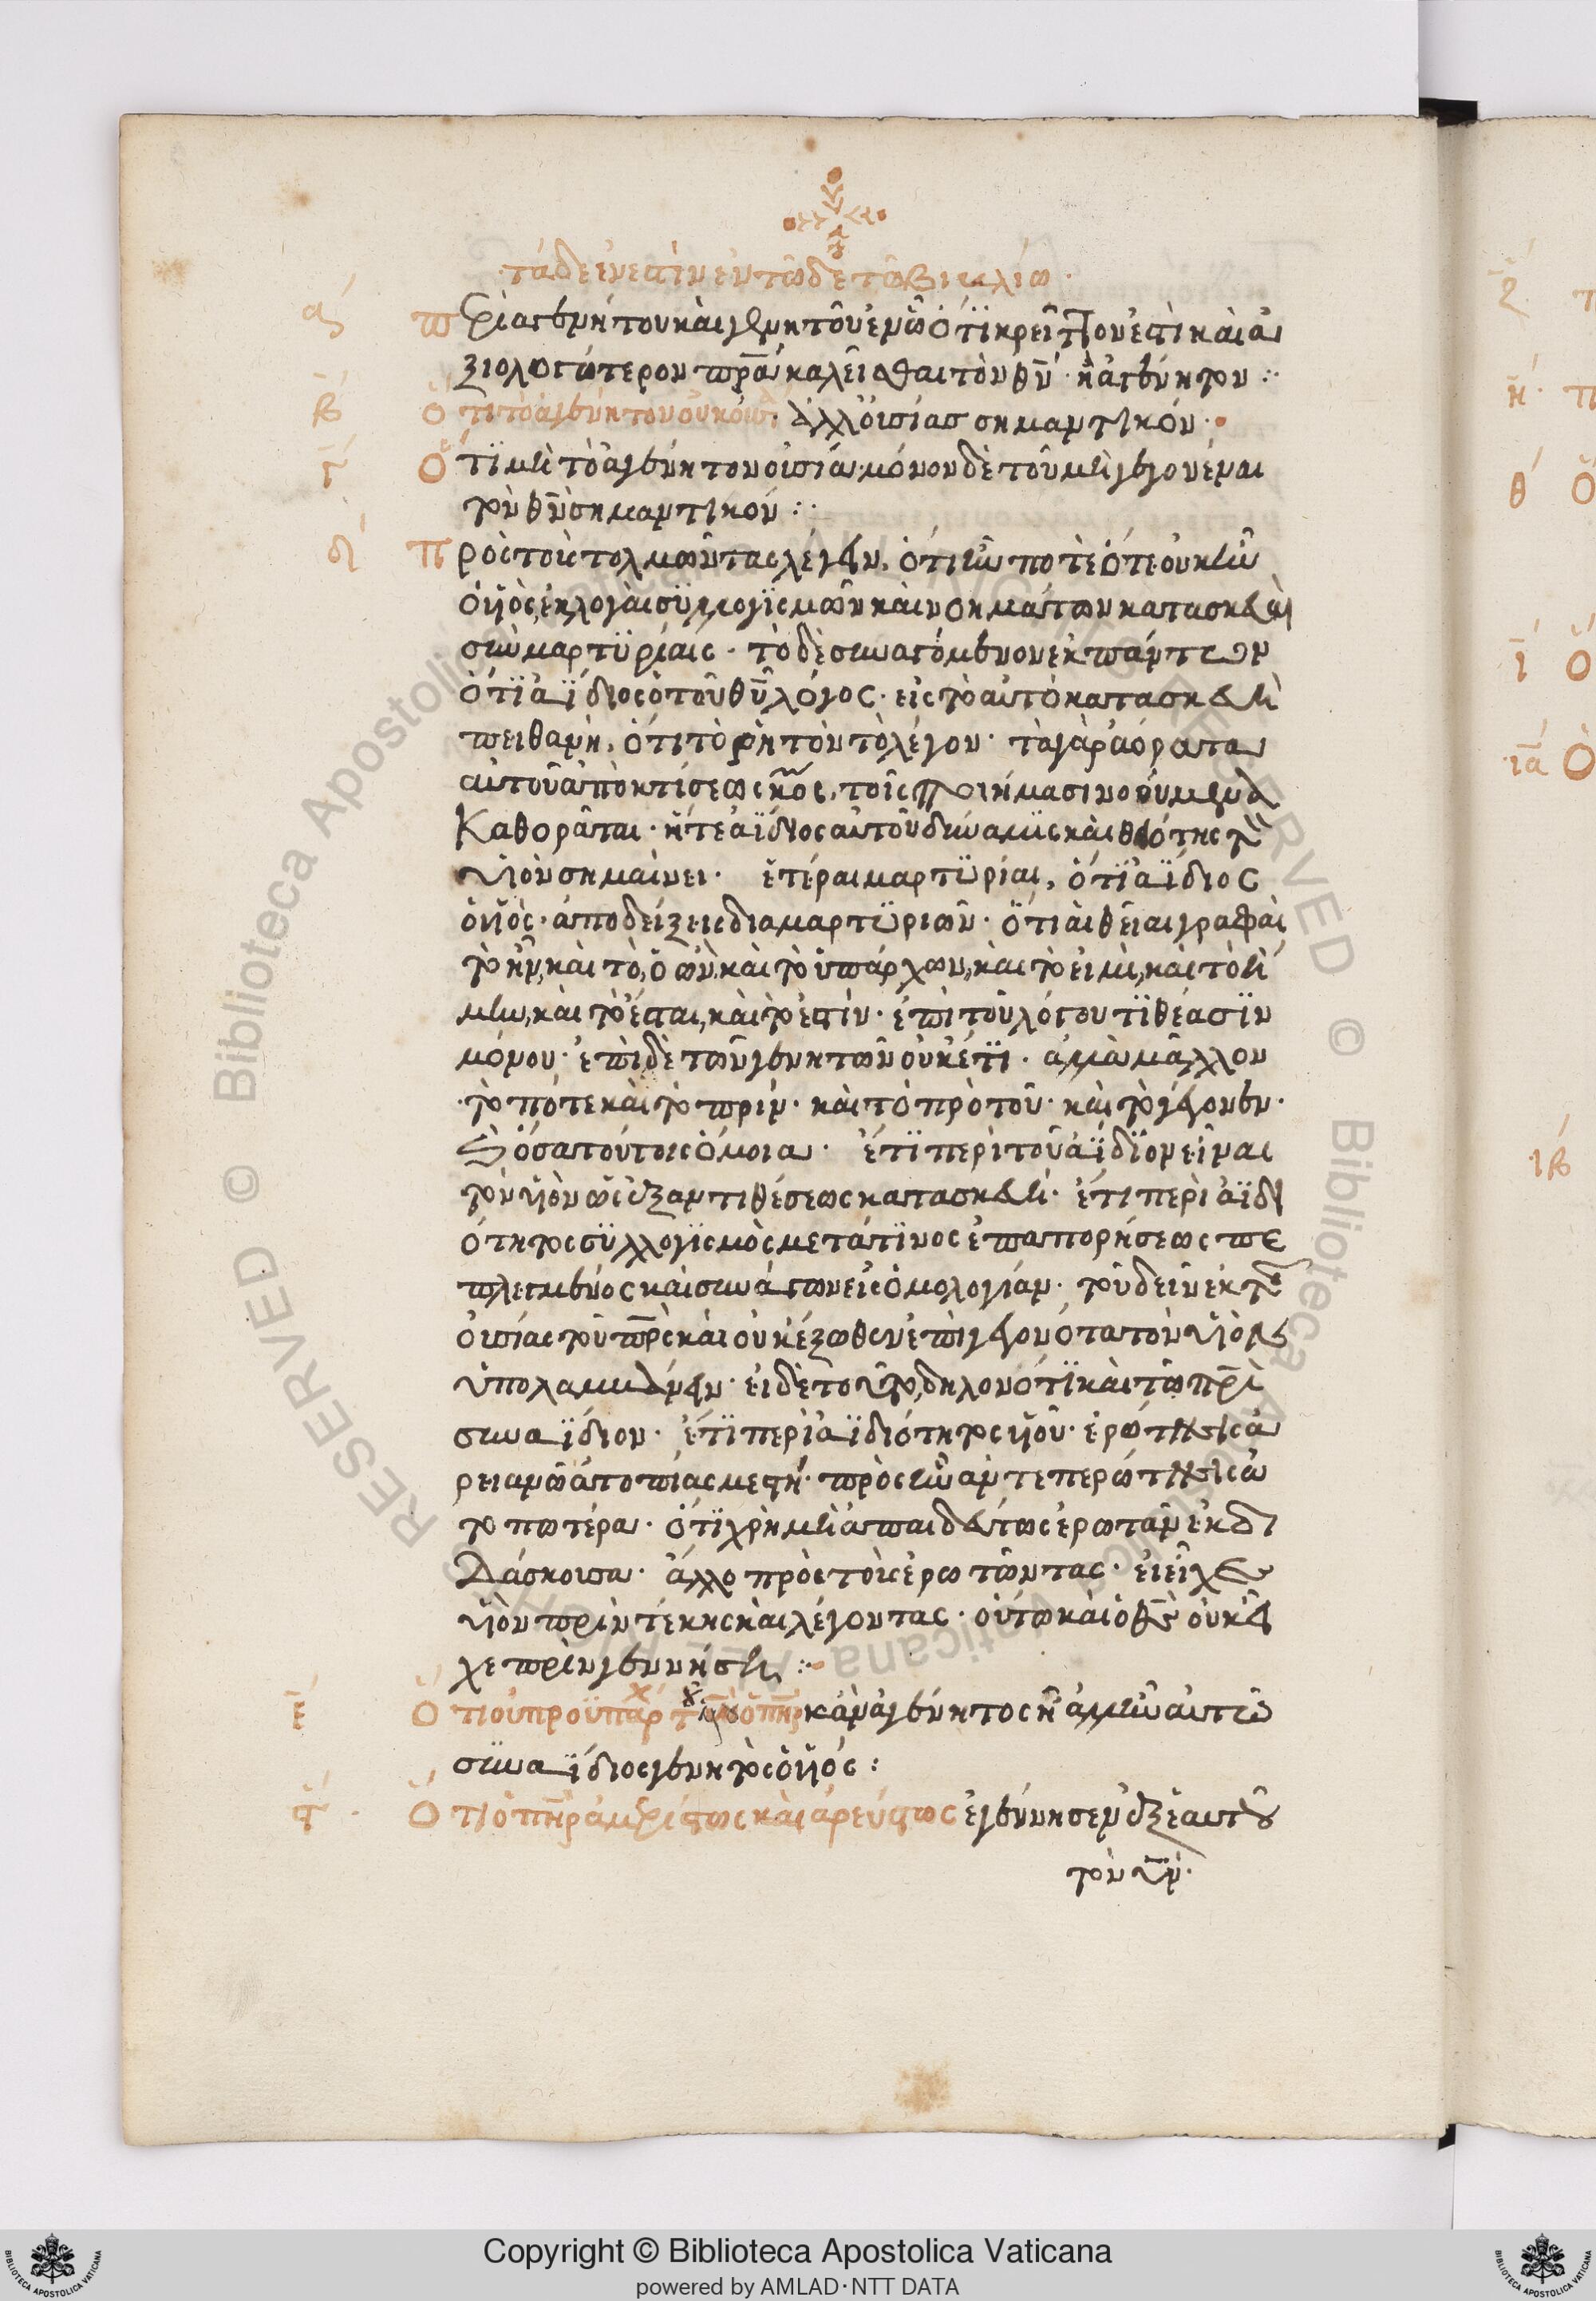 τάδε ἔνεστιν ἐν τῶδε τῶ βιβλίω.
α΄ Περὶ ἀγενήτου καὶ γενητοῦ ἐν ᾧ ὅτι κρεῖττον ἐστὶ καὶ ἀ
ξιολογώτερον πρ̅α καλεῖσθαι τὸν θν̅ ἢ ἀγένητον :
β΄ Ὅτι τὸ ἀγένητον οὐκ οὐσί· ἀλλ' οὐσίας σημαντικόν·
γ΄ Ὅτι μὴ τὸ ἀγένητον οὐσία· μόνον δὲ τοῦ μὴ γεγονέναι
τὸν θν̅ σημαντικόν :
δ΄ Πρὸς τοὺς τολμῶντας λέγειν, ὅτι ἦν ποτὲ ὅτε οὐκ ἦν
ὁ υἱὸς, ἐκλογαὶ συλλογισμῶν καὶ νοημάτων κατασκευαὶ
σὺν μαρτυρίαις· τὸ δὲ συναγόμενον ἐκ πάντων
ὅτι ἀΐδιος ὁ τοῦ θυ̅ λόγος· εἰς τὸ αὐτὸ κατασκευὴ
πειθανὴ, ὅτι τὸ ῥητὸν τὸ λέγον· τὰ γὰρ ἀόρατα
αὐτοῦ ἀπὸ κτίσεως κόσ, τοῖς ποιήμασι νοούμενα
καθορᾶται· ἥτε ἀΐδιος αὐτοῦ δύναμις καὶ θειότης τὸν
υἱὸν σημαίνει· ἕτεραι μαρτυρίαι, ὅτι ἀΐδιος
ὁ υἱὸς· ἀποδείξεις διὰ μαρτυριῶν· ὅτι αἱ θεῖαι γραφαὶ
τὸ ἦν, καὶ τὸ, ὁ ὢν, καὶ τὸ ὑπάρχων, καὶ τὸ εἰμὶ, καὶ τὸ ἤ
μην, καὶ τὸ ἔσται, καὶ τὸ ἐστίν· ἐπὶ τοῦ λόγου τιθέασιν
μόνου· ἐπὶ δὲ τῶν γενητῶν οὐκέτι· ἀλλὰ μᾶλλον
τὸ ποτε καὶ τὸ πρίν· καὶ τὸ πρὸ τοῦ· καὶ τὸ γέγονεν·
καὶ ὅσα τούτοις ὅμοια· ἔτι περὶ τοῦ ἀΐδιον εἶναι
τὸν υἱὸν ὡς ἐξ ἀντιθέσεως κατασκευὴ· ἔτι περὶ ἀϊδι
ότητος συλλογισμὸς μετά τινος ἐπαπορήσεως πε
πλεγμένος καὶ συνάγων εἰς ὁμολογίαν· τοῦ δεῖν ἐκ τῆς
οὐσίας τοῦ πρ̅ς καὶ οὐκ ἔξωθεν ἐπιγεγονότα τὸν υἱὸν
ὑπολαμβάνειν· εἰ δὲ τοῦτο, δῆλον ὅτι καὶ τῶ πρ̅ὶ
συναΐδιον· ἔτι περὶ ἀϊδιότητος υἱοῦ· ἐρώτησις ἀ
ρειανῶν ἀτοπίας μεστή· πρὸς ἣν ἀντεπερώτησις ἀ
τοπωτέρα· ὅτι χρὴ μὴ ἀπαιδεύτως ἐρωτᾶν ἐκδι
δάσκουσα· ἄλλο πρὸς τοὺς ἐρωτῶντας· εἰ εἶχε
υἱὸν πρὶν τέκης καὶ λέγοντας· οὕτω καὶ ὁ θς̅ οὐκ εἶ
χε πρὶν γεννήσῃ :
ε΄ Ὅτι οὐ προϋπάρχ τοῦ υἱοῦ ὁ πηρ̅ κἂν ἀγένητος ἦ ἀλλ' ἦν αὐτῶ
συναΐδιος γενητὸς ὁ υἱός :
ς΄ Ὅτι ὁ πηρ̅ ἀμερίστως καὶ ἀρεύστως ἐγέννησεν ἐξ ἑαυτοῦ
τὸν υν̅.
Copyright © Biblioteca Apostolica Vaticana
powered by AMLAD·NTT DATA